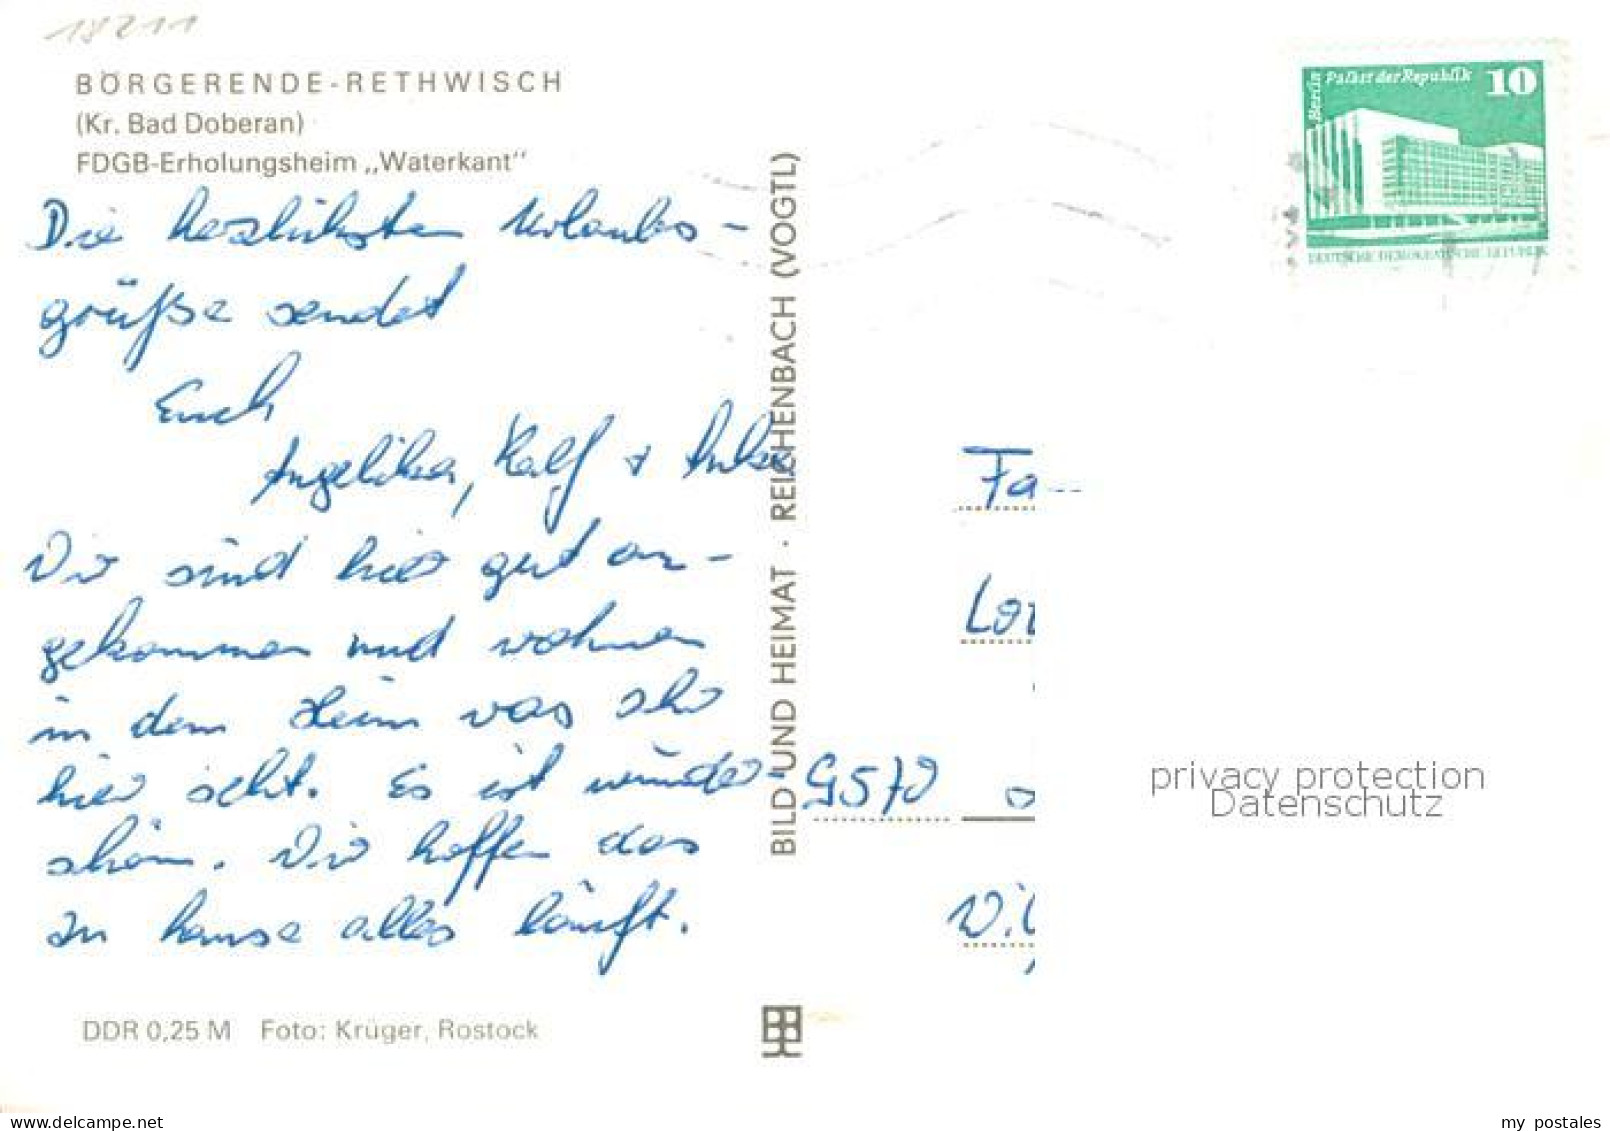 18211
BÖRGERENDE-RETHWISCH
(Kr. Bad Doberan)
FDGB-Erholungsheim „Waterkant"
Die herzlichsten Urlaubs-
grüße sendet
Euch
Angelika, Ralf + Anke
Wir sind hier gut an-
gekommen und wohnen
in dem Heim was ihr
hier seht. Es ist wunder-
schön. Wir hoffen das
zu hause alles läuft.
DDR 0,25 M Foto: Krüger, Rostock
BILD UND HEIMAT · REICHENBACH (VOGTL)
Berlin Palast der Republik 10
DEUTSCHE DEMOKRATISCHE REPUBLIK
Fa
privacy protection
Datenschutz
my postales
www.delcampe.net